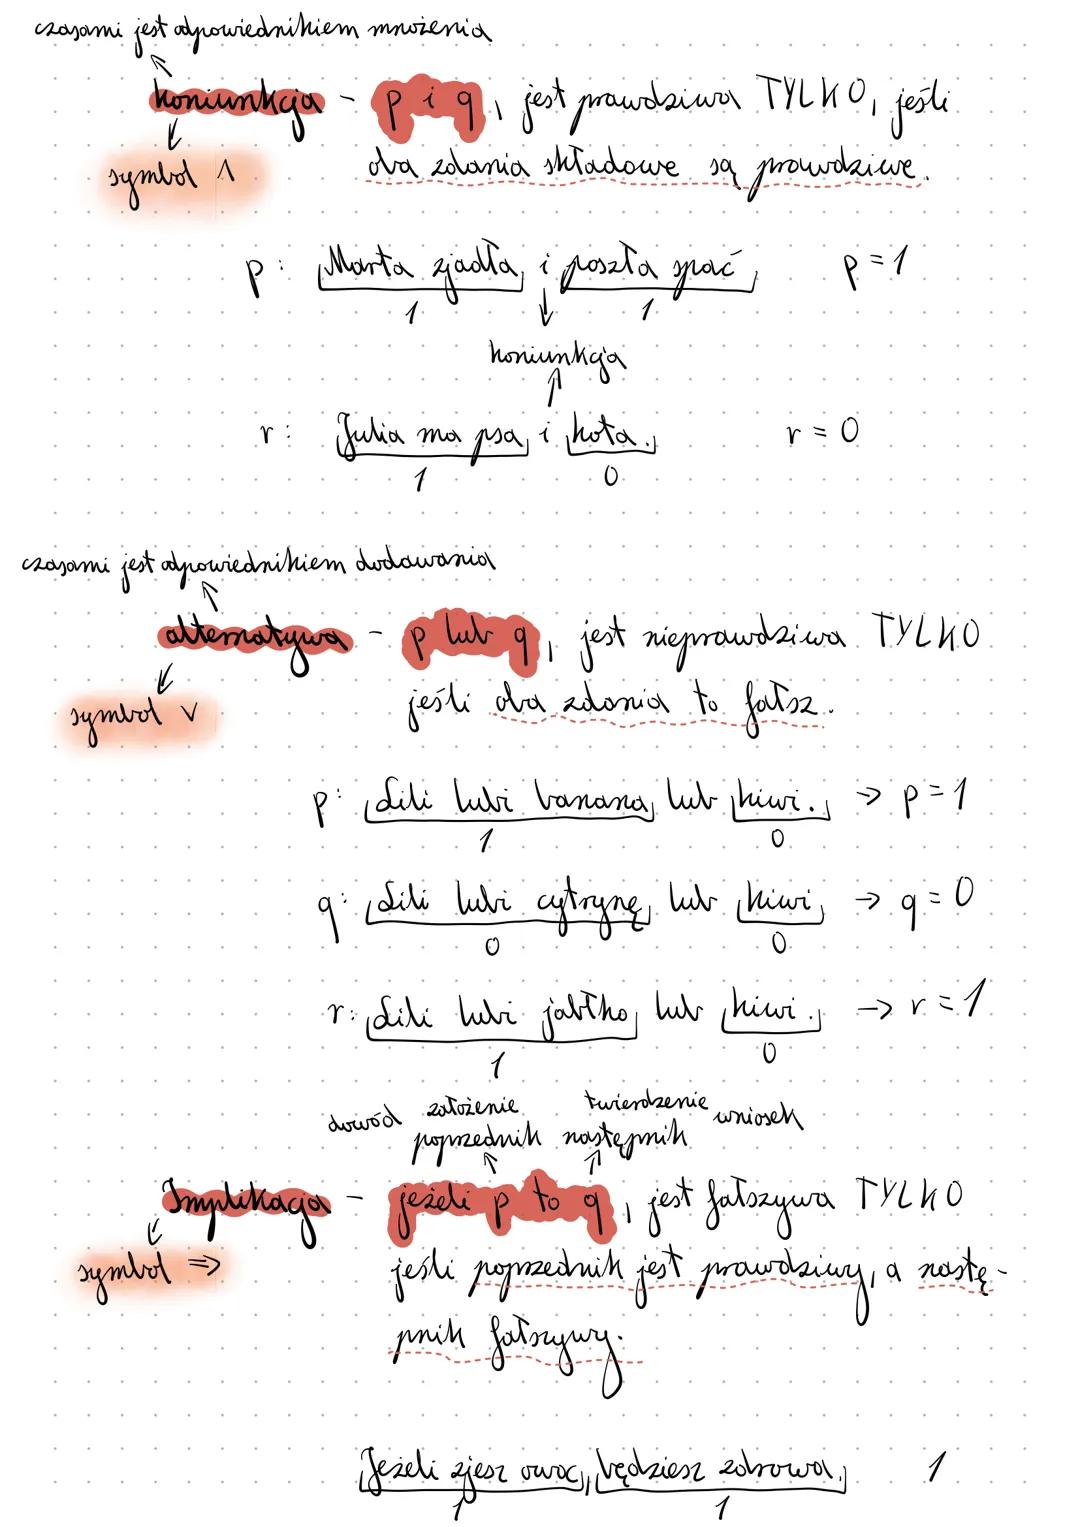 czasami jest odpowiednikiem mnożenia
koniunkcja - p i q, jest prawdziwa TYLKO, jeśli
symbol ∧ oba zdania składowe są prawdziwe.
p: Marta zjadła i poszła spać p = 1
1 1
koniunkcja
r: Julia ma psa i kota. r = 0
1 0
czasami jest odpowiednikiem dodawania
alternatywa - p lub q, jest nieprawdziwa TYLKO
symbol ∨ jeśli oba zdania to fałsz.
p: Lili lubi banana lub kiwi. → p = 1
1 0
q: Lili lubi cytrynę lub kiwi → q = 0
0 0
r: Lili lubi jabłko lub kiwi. → r = 1
1 0
dowód założenie twierdzenie wniosek
poprzednik następnik
Implikacja - jeżeli p to q, jest fałszywa TYLKO
symbol ⇒ jeśli poprzednik jest prawdziwy, a nastę-
pnik fałszywy.
Jeżeli zjesz owoc, będziesz zdrowa. 1
1 1